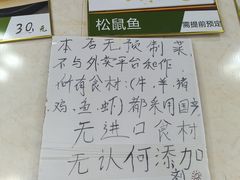 30.元
松鼠鱼
需提前预定
本店无预制菜
不与外卖平台和作
所有食材:(牛、羊、猪
鸡、鱼、虾)都采用国产
无进口食材
无认何添加